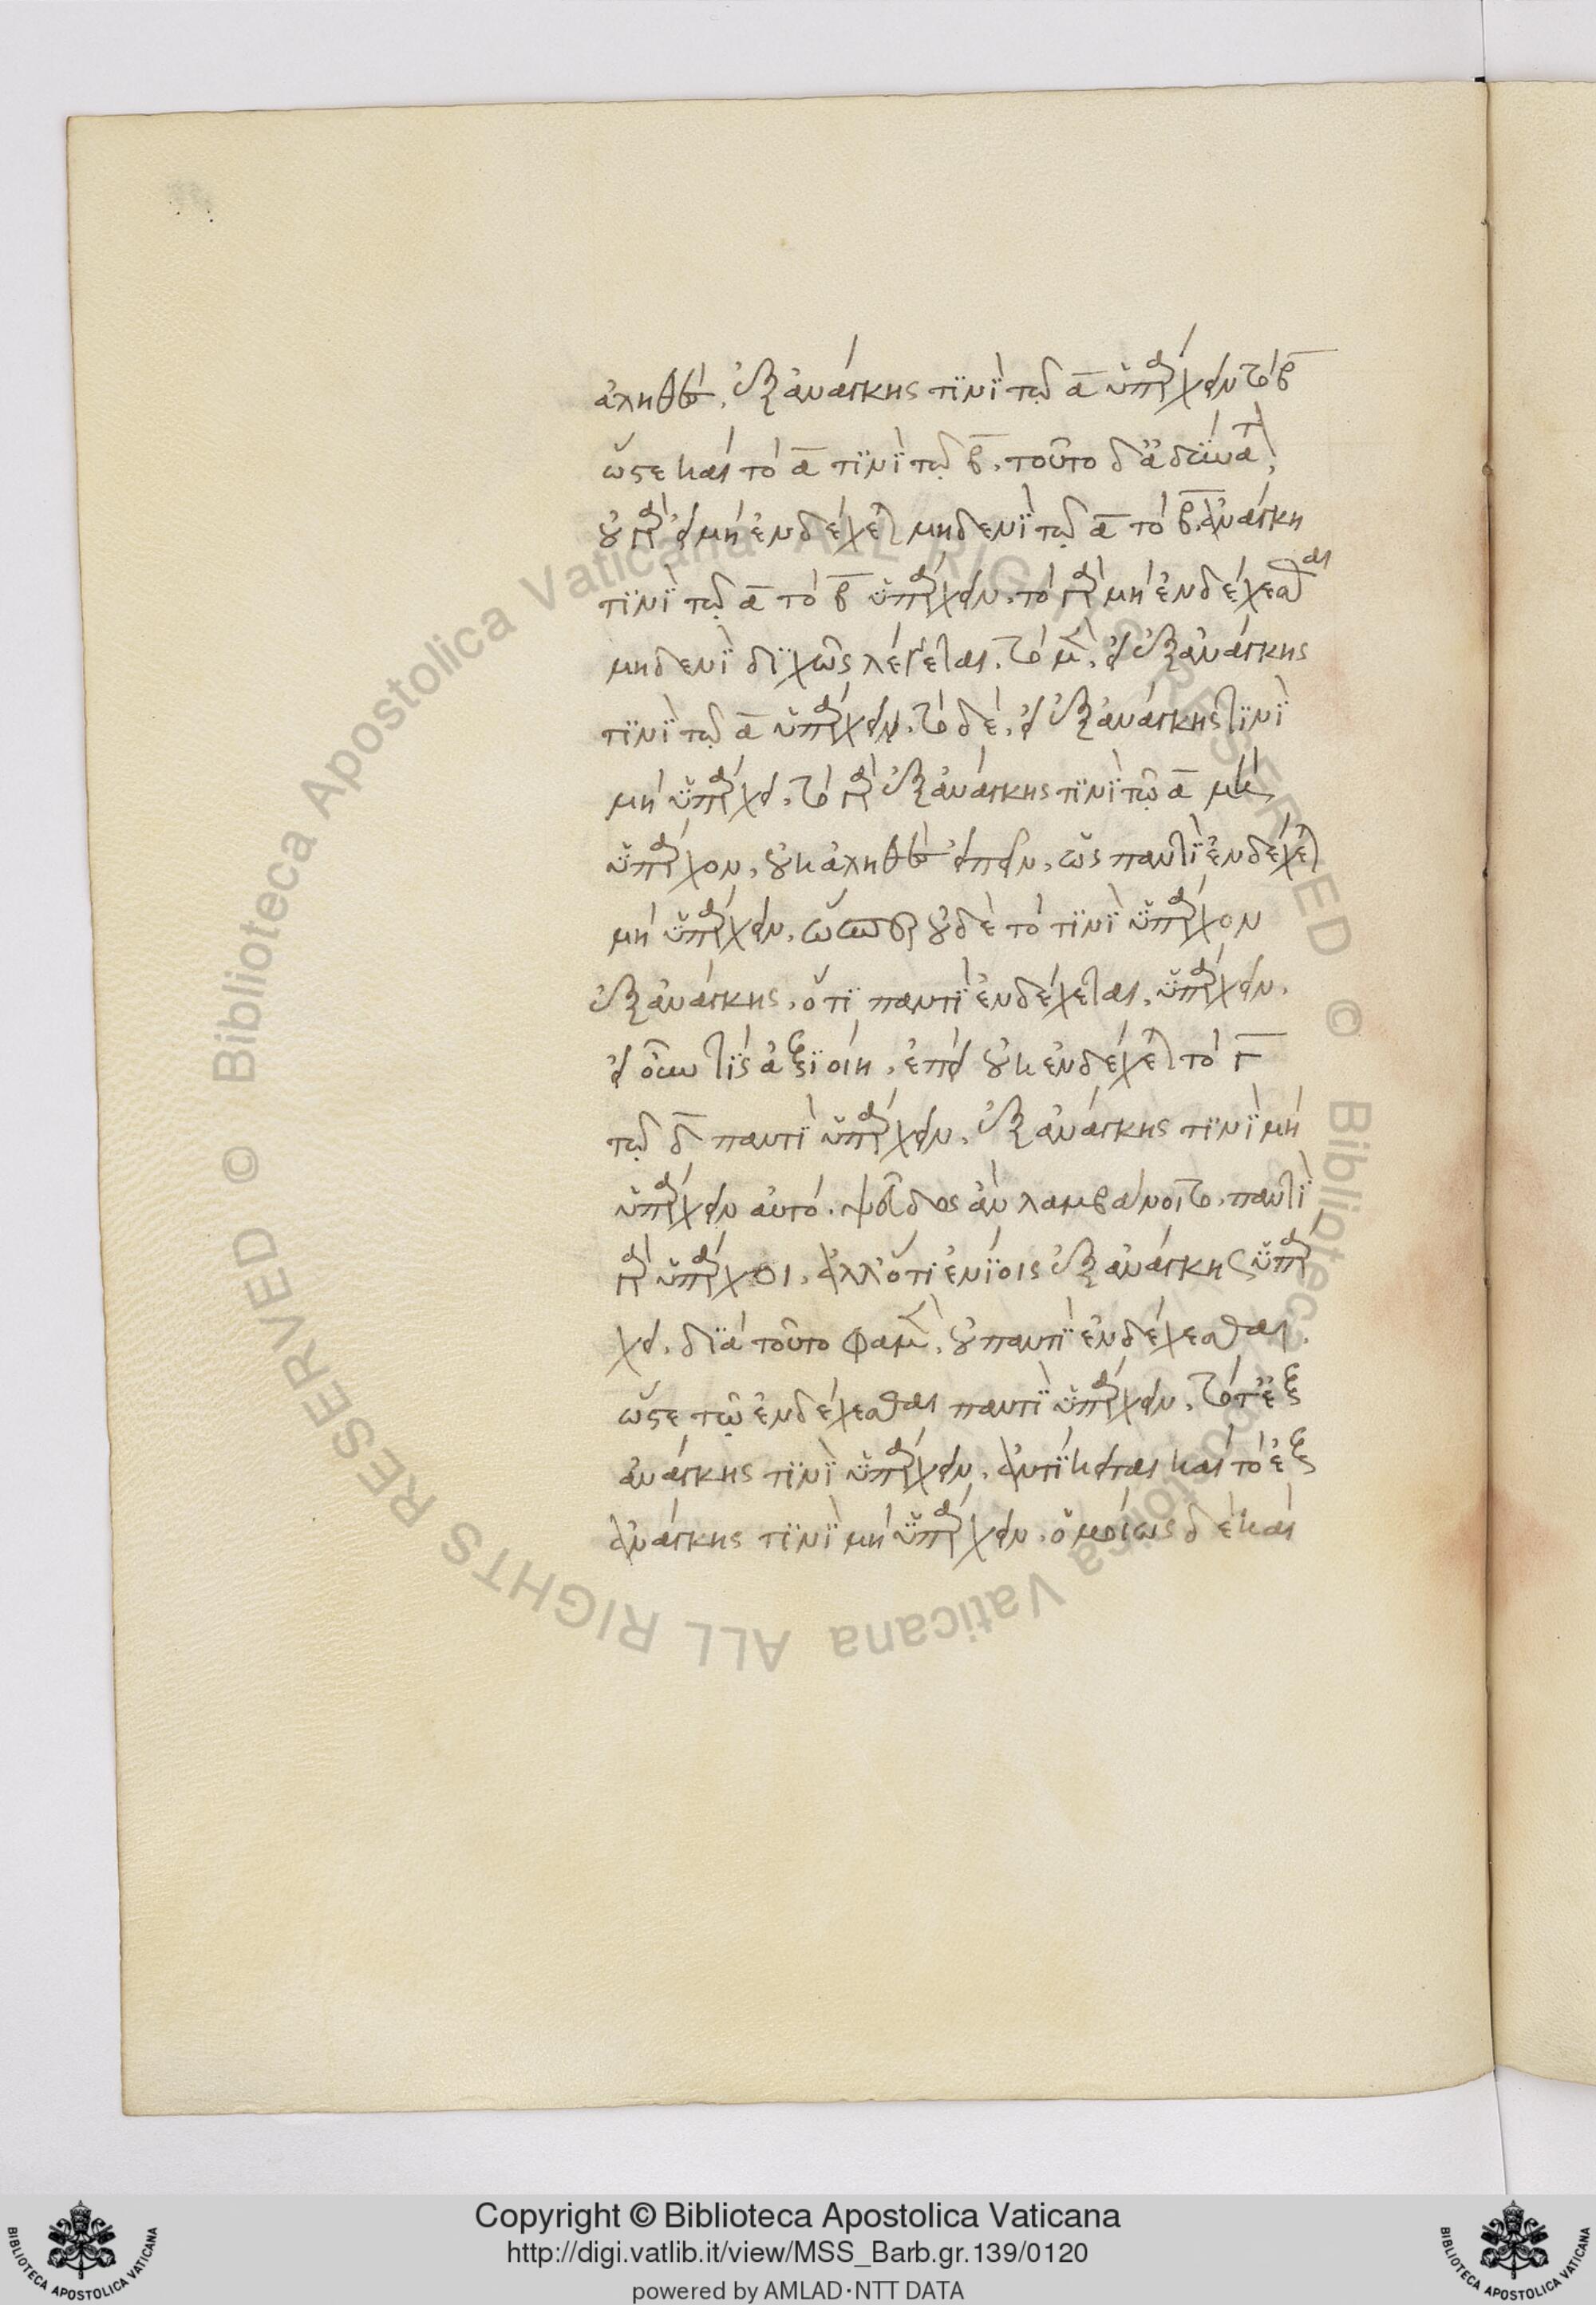 ἀληθὲς, ἐξ ἀνάγκης τϊνὶ τῷ α ὑπάρχειν τὸ β
ὥστε καὶ τὸ α τϊνὶ τῷ β. τοῦτο δ' ἀδύνατ
οὐ γὰρ εἰ μὴ ἐνδέχεται μηδενὶ τῷ α τὸ β, ἀνάγκη
τϊνὶ τῷ α τὸ β ὑπάρχειν. τὸ γὰρ μὴ ἐνδέχεσθαι
μηδενὶ διχῶς λέγεται. τὸ μὲν, εἰ ἐξ ἀνάγκης
τϊνὶ τῷ α ὑπάρχειν. τὸ δὲ, εἰ ἐξ ἀνάγκης τινὶ
μὴ ὑπάρχει. τὸ γὰρ ἐξ ἀνάγκης τϊνὶ τῷ α μὴ
ὑπάρχον, οὐκ ἀληθὲς εἰπεῖν, ὡς παντὶ ἐνδέχεται
μὴ ὑπάρχειν. ὥσπερ οὐδὲ τὸ τϊνὶ ὑπάρχον
ἐξ ἀνάγκης, ὅτι παντὶ ἐνδέχεται, ὑπάρχειν.
εἰ οὖν τὶς ἀξιοίη, ἐπεὶ οὐκ ἐνδέχεται τὸ γ
τῷ δ παντὶ ὑπάρχειν, ἐξ ἀνάγκης τϊνὶ μὴ
ὑπάρχειν αὐτὸ. ψεῦδος ἂν λαμβάνοιτο. παντὶ
γὰρ ὑπάρχοι, ἀλλ' ὅτι ἐνίοις ἐξ ἀνάγκης ὑπάρ
χει. διὰ τοῦτο φαμὲν, οὐ παντὶ ἐνδέχεσθαι.
ὥστε τῷ ἐνδέχεσθαι παντὶ ὑπάρχειν, τό τ' ἐξ
ἀνάγκης τϊνὶ ὑπάρχειν, ἀντίκειται καὶ τὸ ἐξ
ἀνάγκης τϊνὶ μὴ ὑπάρχειν. ὁμοίως δὲ καὶ
Copyright © Biblioteca Apostolica Vaticana
http://digi.vatlib.it/view/MSS_Barb.gr.139/0120
powered by AMLAD·NTT DATA